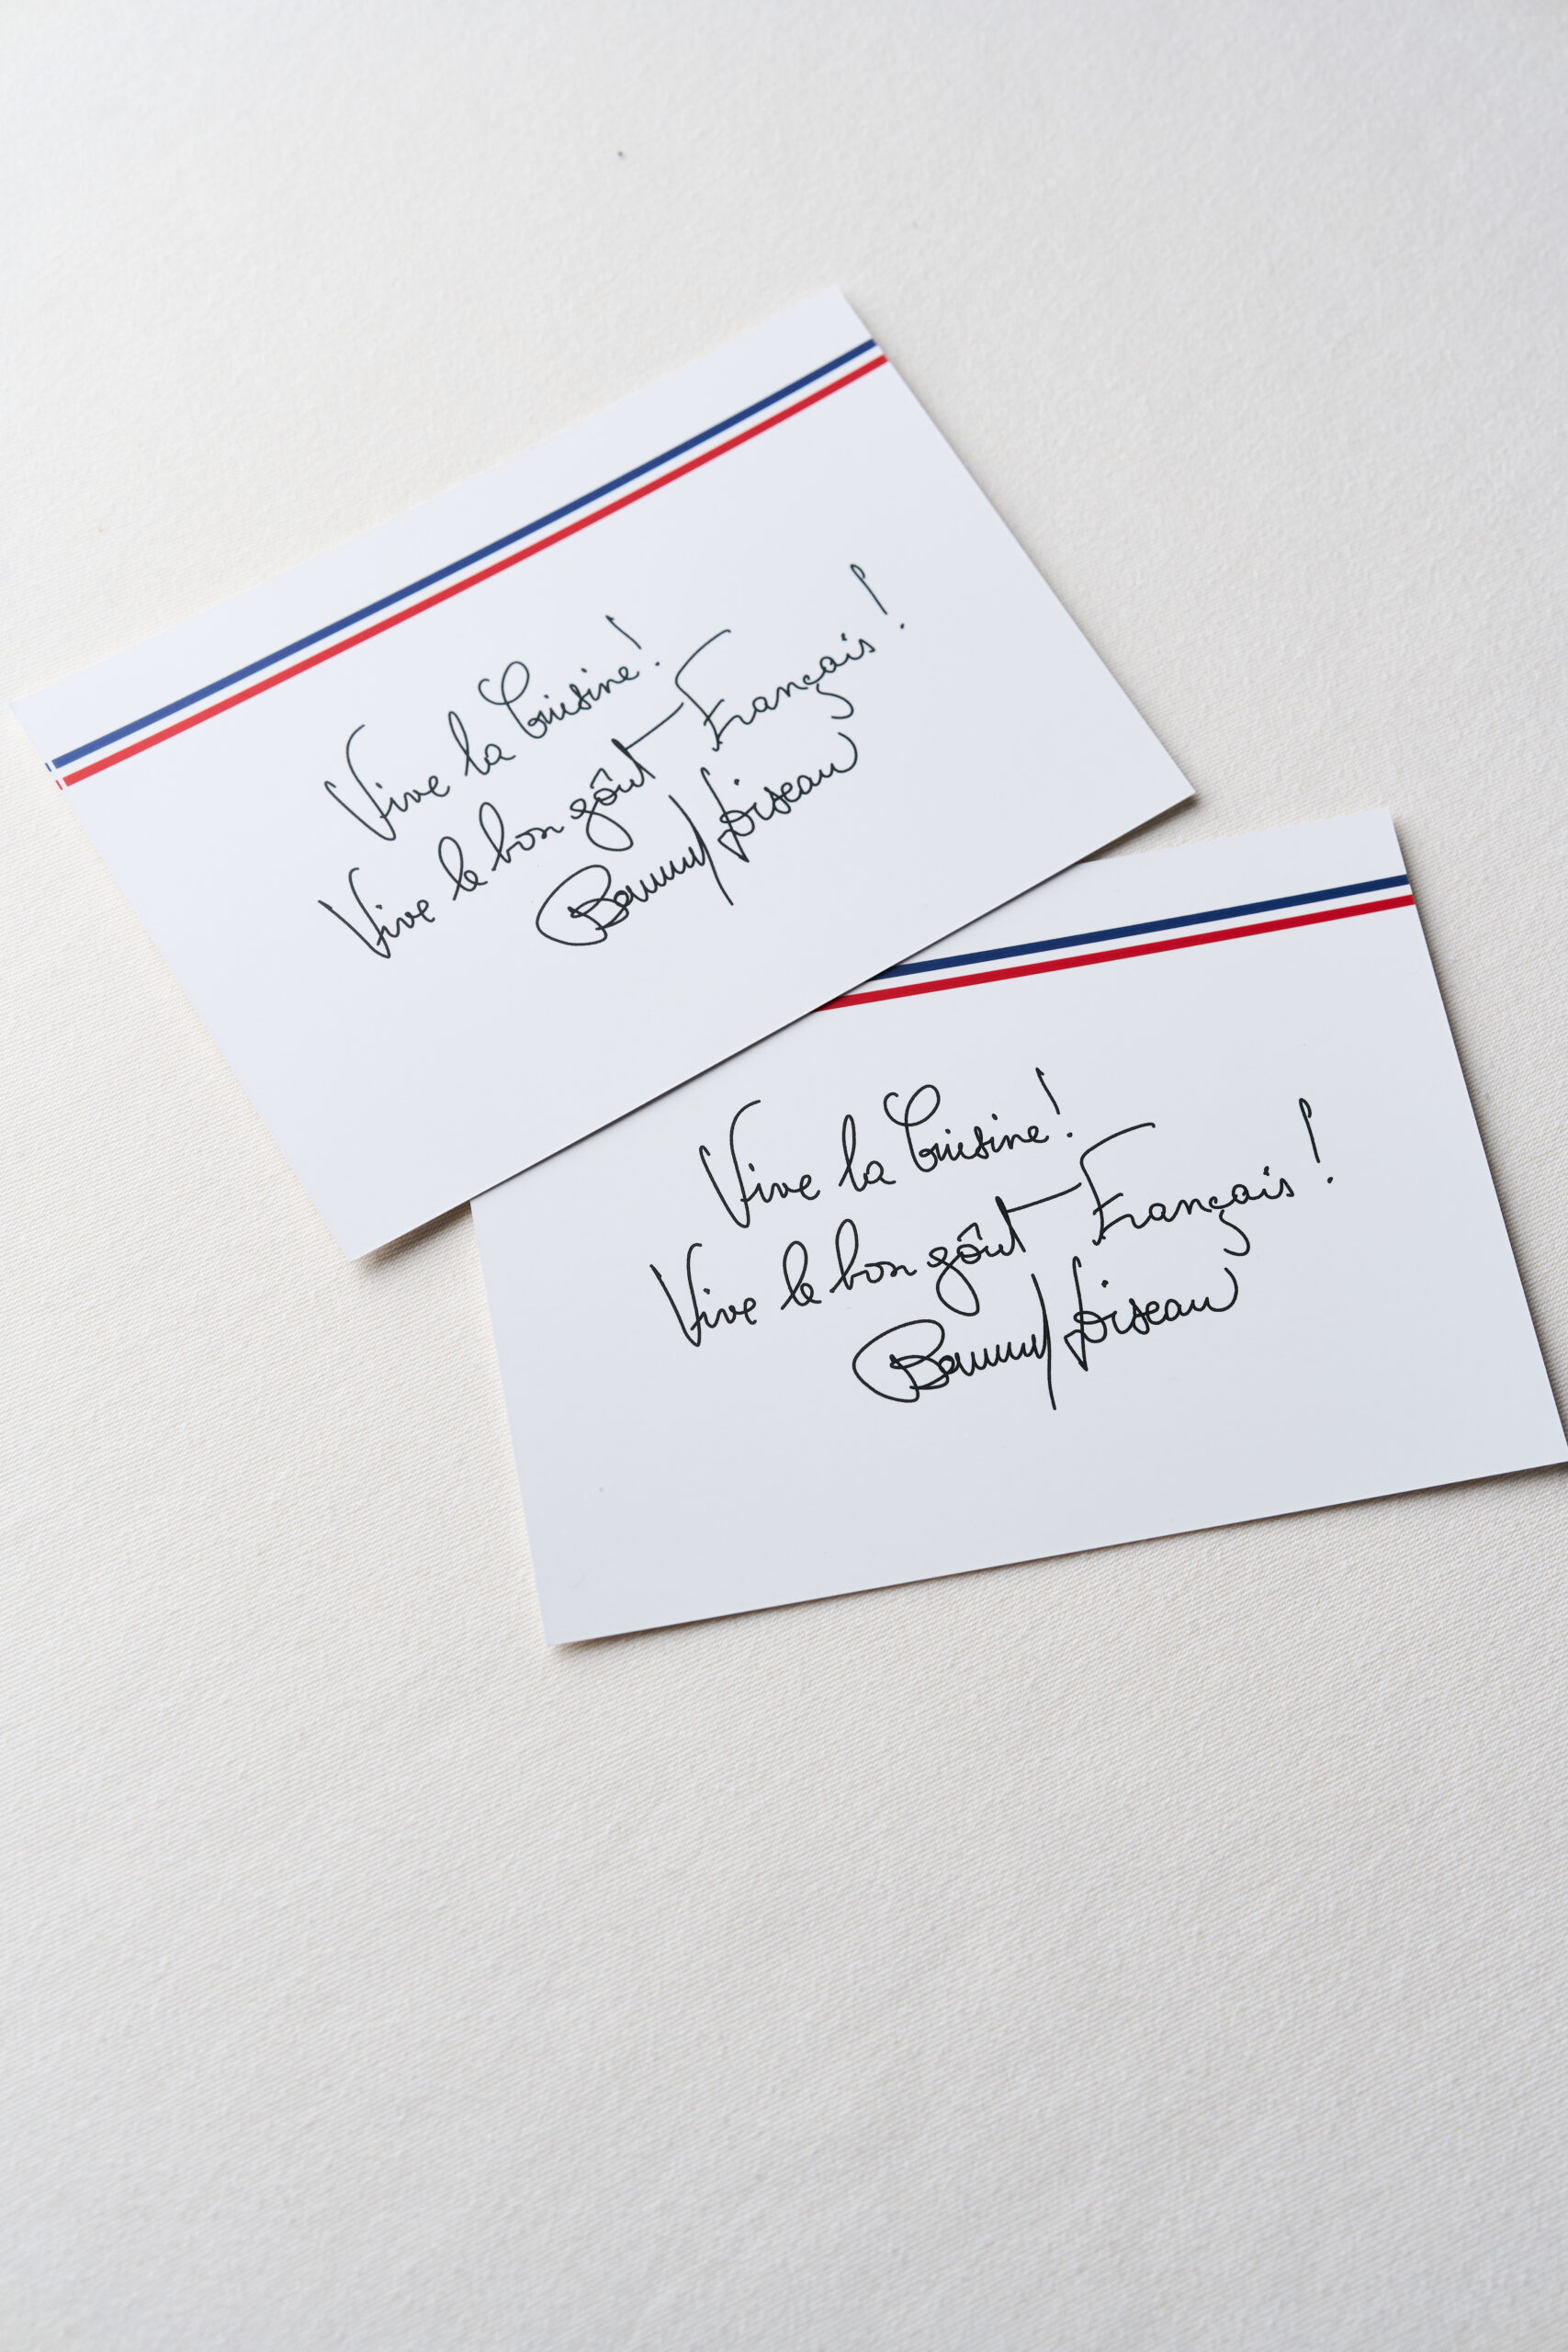 Vive la Cuisine!
Vive le bon goût Français !
Bernard Loiseau
Vive la Cuisine!
Vive le bon goût Français !
Bernard Loiseau